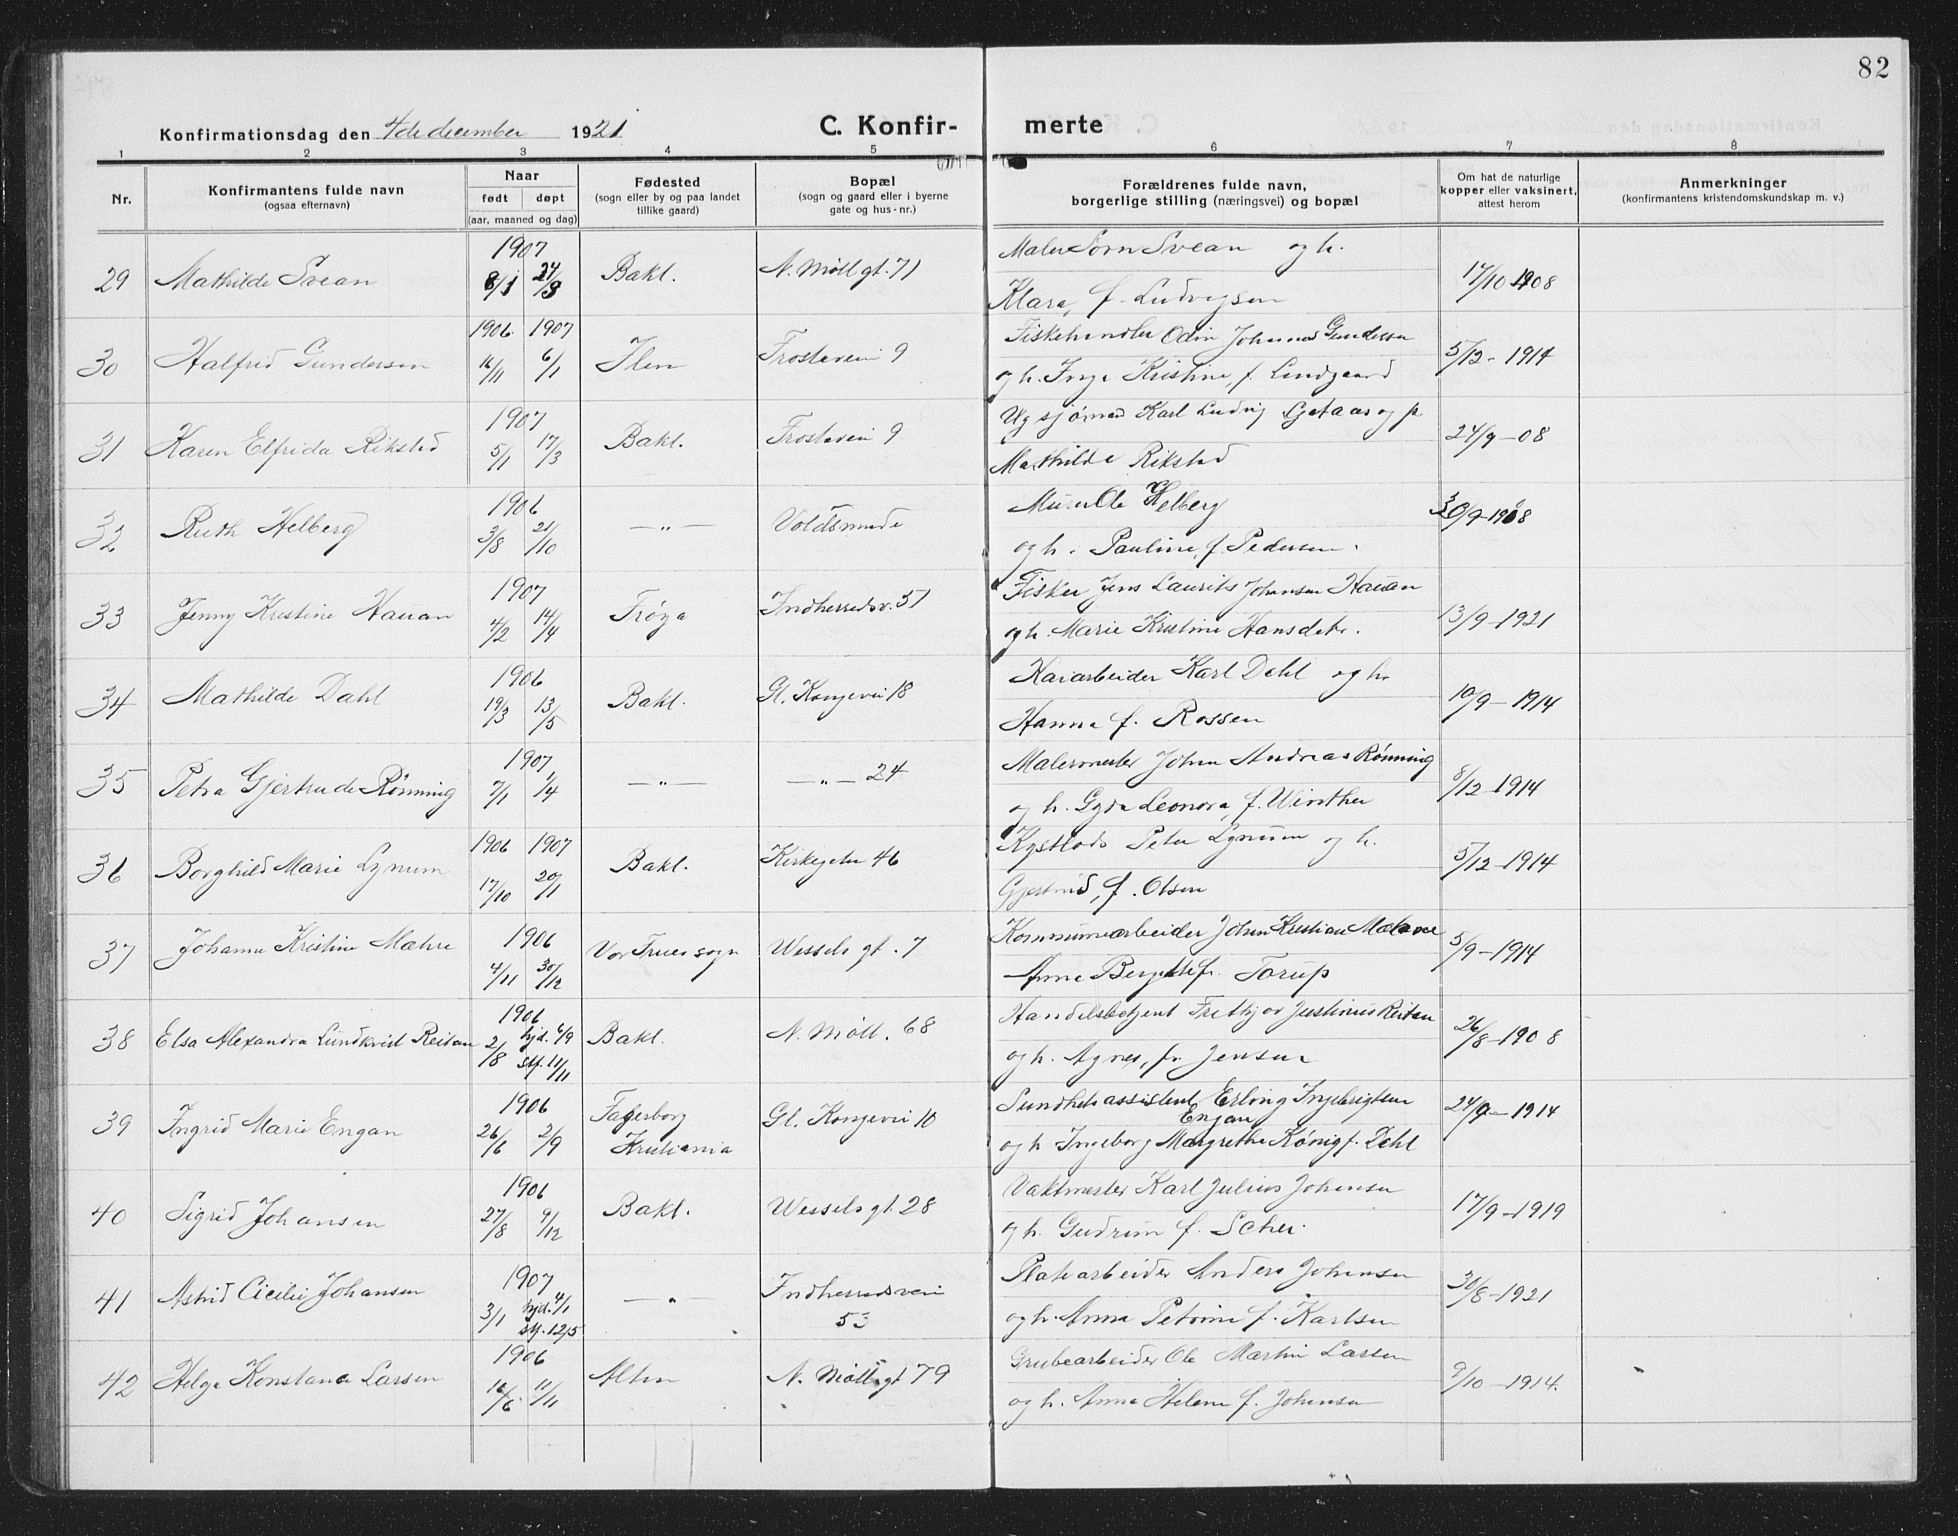 82
Konfirmationsdag den 4de december 1921 C. Konfir- merte
1 2 3 4 5 6 7 8
Nr. Konfirmantens fulde navn (ogsaa efternavn) Naar født døpt (aar, maaned og dag) Fødested (sogn eller by og paa landet tillike gaard) Bopæl (sogn og gaard eller i byerne gate og hus-nr.) Forældrenes fulde navn, borgerlige stilling (næringsvei) og bopæl Om hat de naturlige kopper eller vaksinert, attest herom Anmerkninger (konfirmantens kristendomskundskap m. v.)
1907 Maler Sorn Svean og h.
29 Mathilde Svean 8/1 24/3 Bakl. N. Möll gt. 71 Klara, f. Ludvigsen 17/10 1908
1906 1907 Fiskehandler Odin Johannes Gundersen
30 Halfrid Gundersen 16/11 6/1 Ilen Frostaveien 9 og h. Inga Kristine, f. Lundgaard 5/12 - 1914
1907 Ug sjömand Karl Ludvig Gataas og p
31 Karen Elfrida Rikstad 5/1 17/3 Bakl. Frostaveien 9 Mathilde Rikstad 24/9 - 08
1906 Murer Ole Helberg
32 Ruth Helberg 3/8 21/10 — „ — Voldsminde og h. Pauline, f. Pedersen. 30/9-1908
1907 Fisker Jens Laurits Johansen Hauan
33 Jenny Kristine Hauan 4/2 14/4 Frøya Indherredsv. 51 og h. Marie Kristine Hansdtr. 13/9-1921
1906 Kaiarbeider Karl Dahl og h.
34 Mathilde Dahl 19/3 13/5 Bakl. Gl. Kongevei 18 Hanna f. Rossen 10/9 - 1914
1907 Malermester Johan Andreas Rønning
35 Petra Gjertrude Rønning 7/1 1/4 — „ — — „ — 24 og h. Gyda Leonora, f. Winther 8/12 - 1914
1906 1907 Kystlods Peter Lynum og h.
36 Borghild Marie Lynum 17/10 20/1 Bakl. Kirkegatn 46 Gjertrud, f. Olsen 5/12 - 1914
1906 Kommunearbeider Johan Kristian Mæhre
37 Johanne Kristine Mæhre 4/11 30/12 Vor Frues sogn Wessels gt. 7 Anna Bergitte f. Torup 5/9 - 1914
1906 Handelsbetjent Fridtjov Justinus Reitan
38 Elsa Alexandra Lundkvist Reitan 2/8 hjd. 6/9 stf. 11/11 Bakl. N. Möll. 68 og h. Agnes, f. Jensen 26/8-1908
1906 Sundhetsassistent Erling Ingebrigtsen Engan
39 Ingrid Marie Engan 26/6 2/9 Fagerborg Kristiania Gl. Kongevei 10 og h Ingeborg Margrethe König f. Dahl 24/9 - 1914
1906 Vaktmester Karl Julius Johansen
40 Sigrid Johansen 27/8 9/12 Bakl. Wessels gt. 28 og h. Gudrun f. Schei 17/9-1919
1907 Platearbeider Anders Johansen
41 Astrid Cicilie Johansen 3/1 hjd. 4/1 stf. 12/5 — „ — Indherredsveien 53 og h. Anna Petrine f. Karlsen 30/8-1921
1906 Grubearbeider Ole Martin Larsen
42 Helga Konstanse Larsen 16/6 11/11 Alten N. Möll gt 79 og h. Anna Helene f. Johansen 9/10 - 1914.